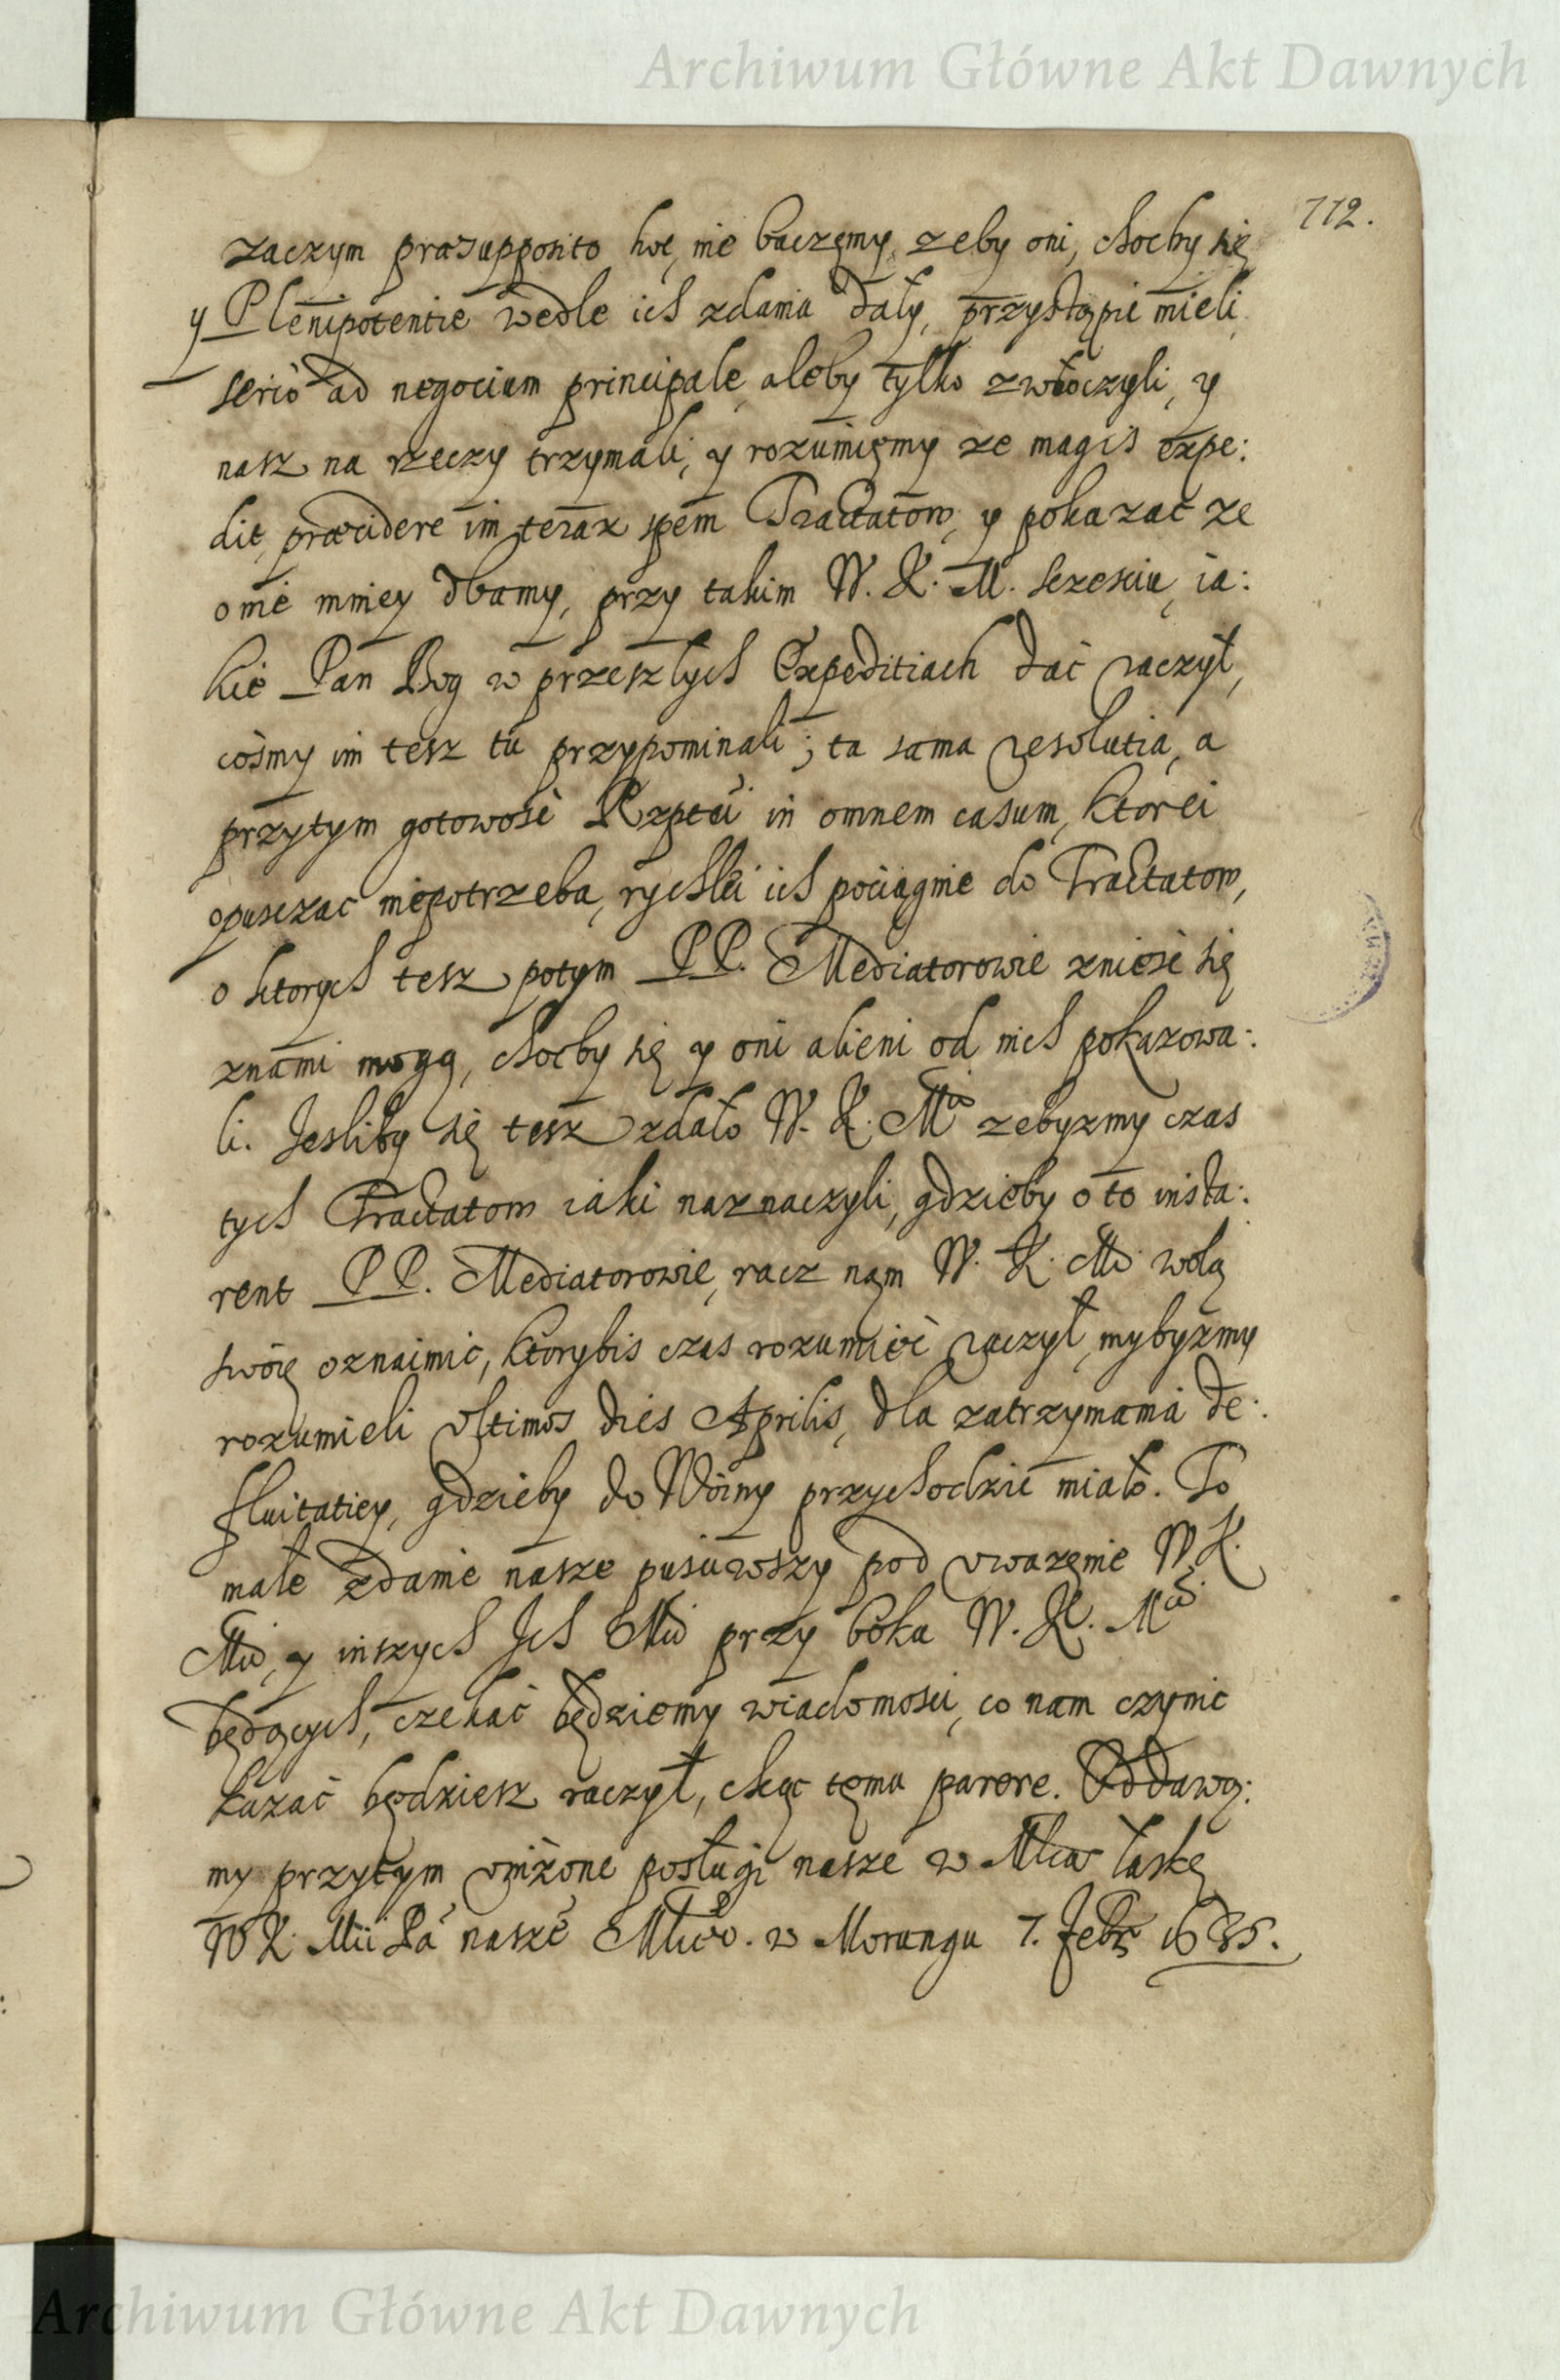 Archiwum Główne Akt Dawnych
112.
zaczym praesupposito hoc, nie baczęmy, zeby oni, choćby się
y Plenipotentie wedle ich zdania dały, przystąpić mieli
serio ad negocium principale, aleby tylko zwłoczyli, y
nasz na rzeczy trzymali, y rozumięmy ze magis expe:
dit, praecidere im teraz spem Tractatow, y pokazać ze
o nie mniey dbamy, przy takim W. K. M. sczesciu, ia:
kie Pan Bog w przeszłych Expeditiach dać raczył,
cośmy im tesz tu przypominali; ta sama resolutia, a
przytym gotowość Rzptei in omnem casum, ktorei
opusczac niepotrzeba, rychlei ich pociągnie do Tractatow,
o ktorych tesz potym PP. Mediatorowie znieść się
znami mogą, choćby się y oni alieni od nich pokazowa:
li. Jesliby się tesz zdało W. K. Mci zebyzmy czas
tych Tractatow iaki naznaczyli, gdzieby o to insta:
rent PP. Mediatorowie, racz nąm W. K. Mć wolą
swoię oznaimić, ktorybis czas rozumieć raczył, mybyzmy
rozumieli ultimos dies Aprilis, dla zatrzymania de:
fluitatiey, gdzieby do Woiny przychodzić miało. To
małe zdanie nasze pusciwszy pod uwazęnie W. K.
Mci, y inszych Ich Mci przy boku W. K. Mci
będących, czekać będziemy wiadomosci, co nam czynić
kazać będziesz raczył, chcąc tęmu parere. Oddawą:
my przytym unizone posługi nasze w Mciwą łaskę
W K. Mci Pa nasze Mciwo. w Morungu 7. Febr 1635.
Archiwum Główne Akt Dawnych